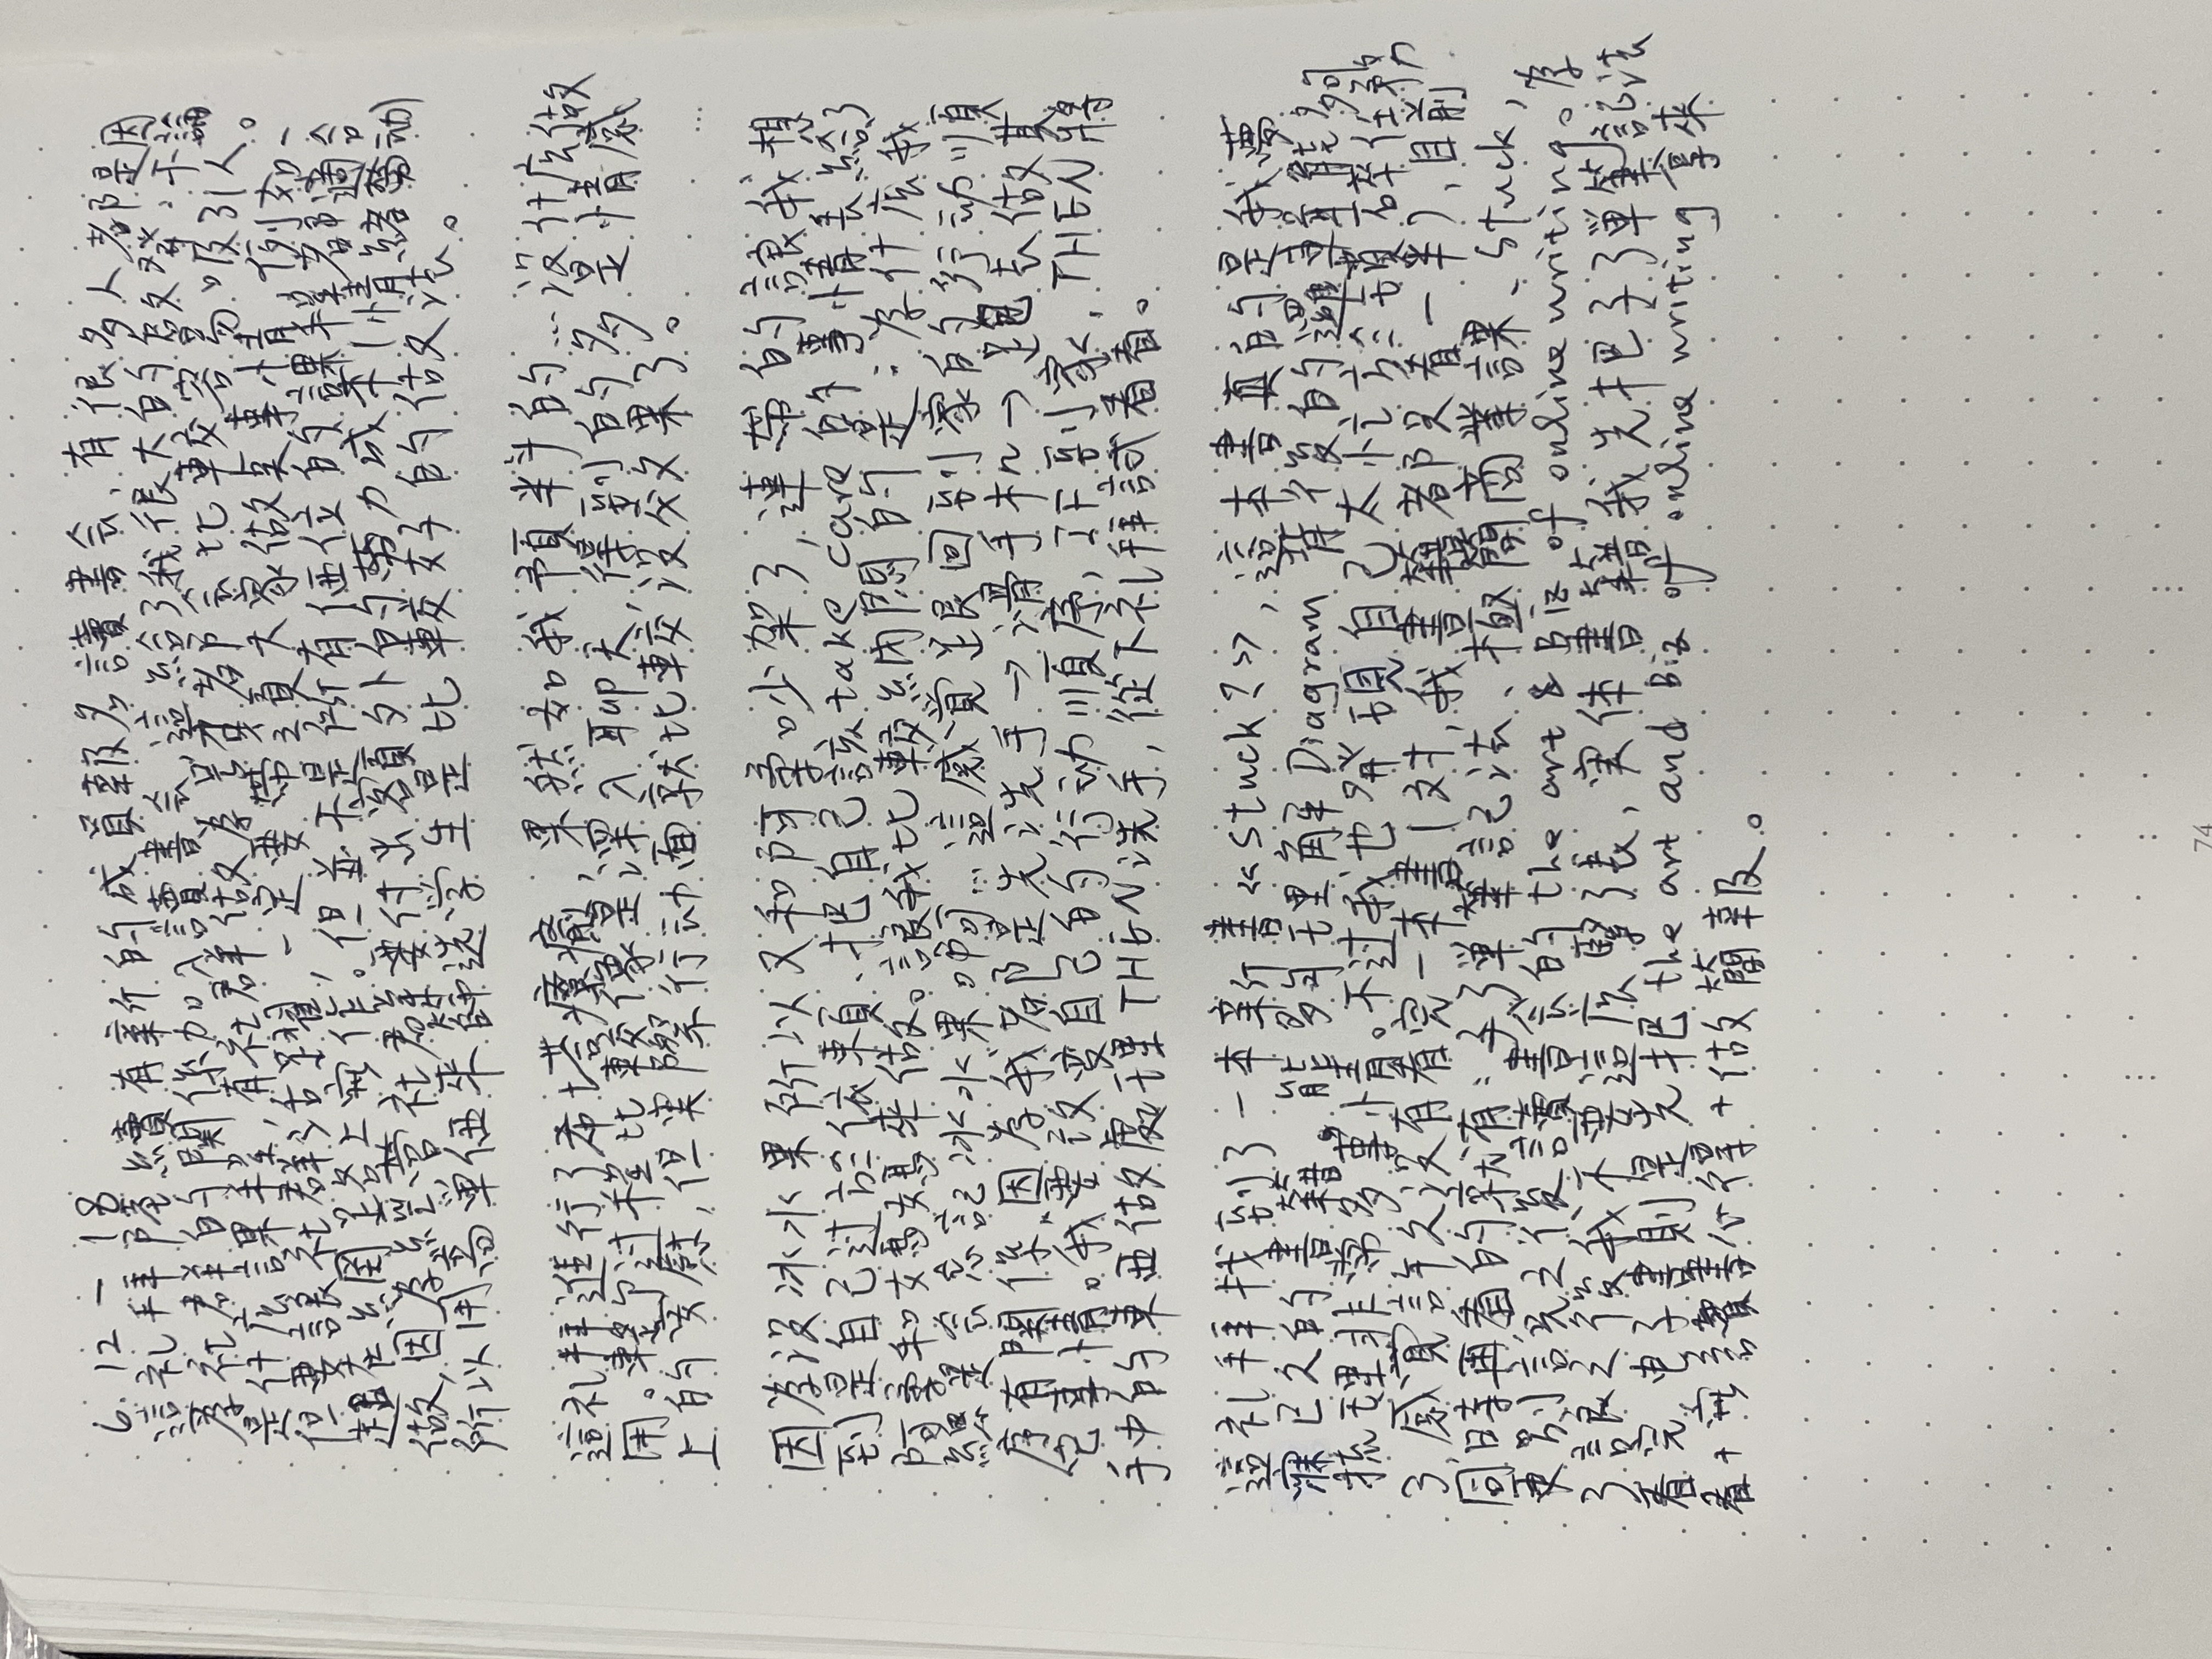 6.12-18
這礼拜陸續有新的成員報名讀書会,有很多人都是因
為社群的關係加入讀書会,這給了我很大的啟發:不論
是什広課程,有社群做為号召都会比較容易吸引人。
但要讓社群活躍,一定要帶領大家做点事情,例如一
起在
做,因為経営社群要付出額外的勞力或(情緒勞动)
所以用高単価來篩选学生是比較好的做法。
這礼拜進行了希塔療癒,果然如我預料的…没什広做
用。整个过程比較像是深入聊天,得到的多是情感
上的安慰,但実際行动面就比較没效果了。
因為没冰水果所以又和阿柔吵架了,連帶的讓我想
到是自己过於依賴、把自己該take care的事情丢給了
阿柔和女馬女馬來做。讓我比較納悶的是:為什広我
總是会忘記冰水果。啊…這感覚跟回到家的行动順
序有関係,因為我都是先洗手→滑手机→跑去做其
它事情。我要改変自己的行动順序,IF到家,THEN將
手中的東西做處理THEN洗手,從下礼拜試看看。
這礼拜找到了一本新書《Stuck?》,這本書真的是我夢
寐已久的書籍。能夠理解Diagram背後的邏輯能夠
梳理非常多事情。不过我也発現自己太忙於瑣碎任務
了,感覚許久没有看完一本書(对,我書籍都只看一半),目前
同時再看的就有:子弾筆記法、極簡商業課、Stuck,
更別說之後讀書会的the art & Biz of online writing。為
了讓之後我不要這広緊張,実体書籍我先把子弾筆記法
看完,电子書則是先把the art and Biz of online writing拿來
看+寫讀書心得+做簡報。
74